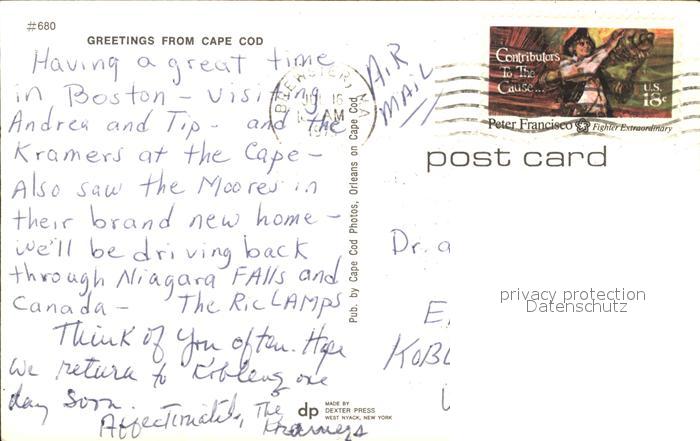 #680
GREETINGS FROM CAPE COD
Having a great time
in Boston – visiting
Andrea and Tip - and the
Kramers at the Cape –
Also saw the Moores in
their brand new home –
we'll be driving back
through Niagara Falls and
Canada – The RicLAMPS
Think of you often. Hope
we return to Koblenz one
day soon.
Affectionately, The
Kramers
Pub. by Cape Cod Photos, Orleans on Cape Cod
dp
MADE BY
DEXTER PRESS
WEST NYACK, NEW YORK
AIR
MAIL
BREWSTER, MA
16
AM
Contributors
To The
Cause...
U.S.
18c
Peter Francisco Fighter Extraordinary
post card
Dr. a
E
KOBL
privacy protection
Datenschutz